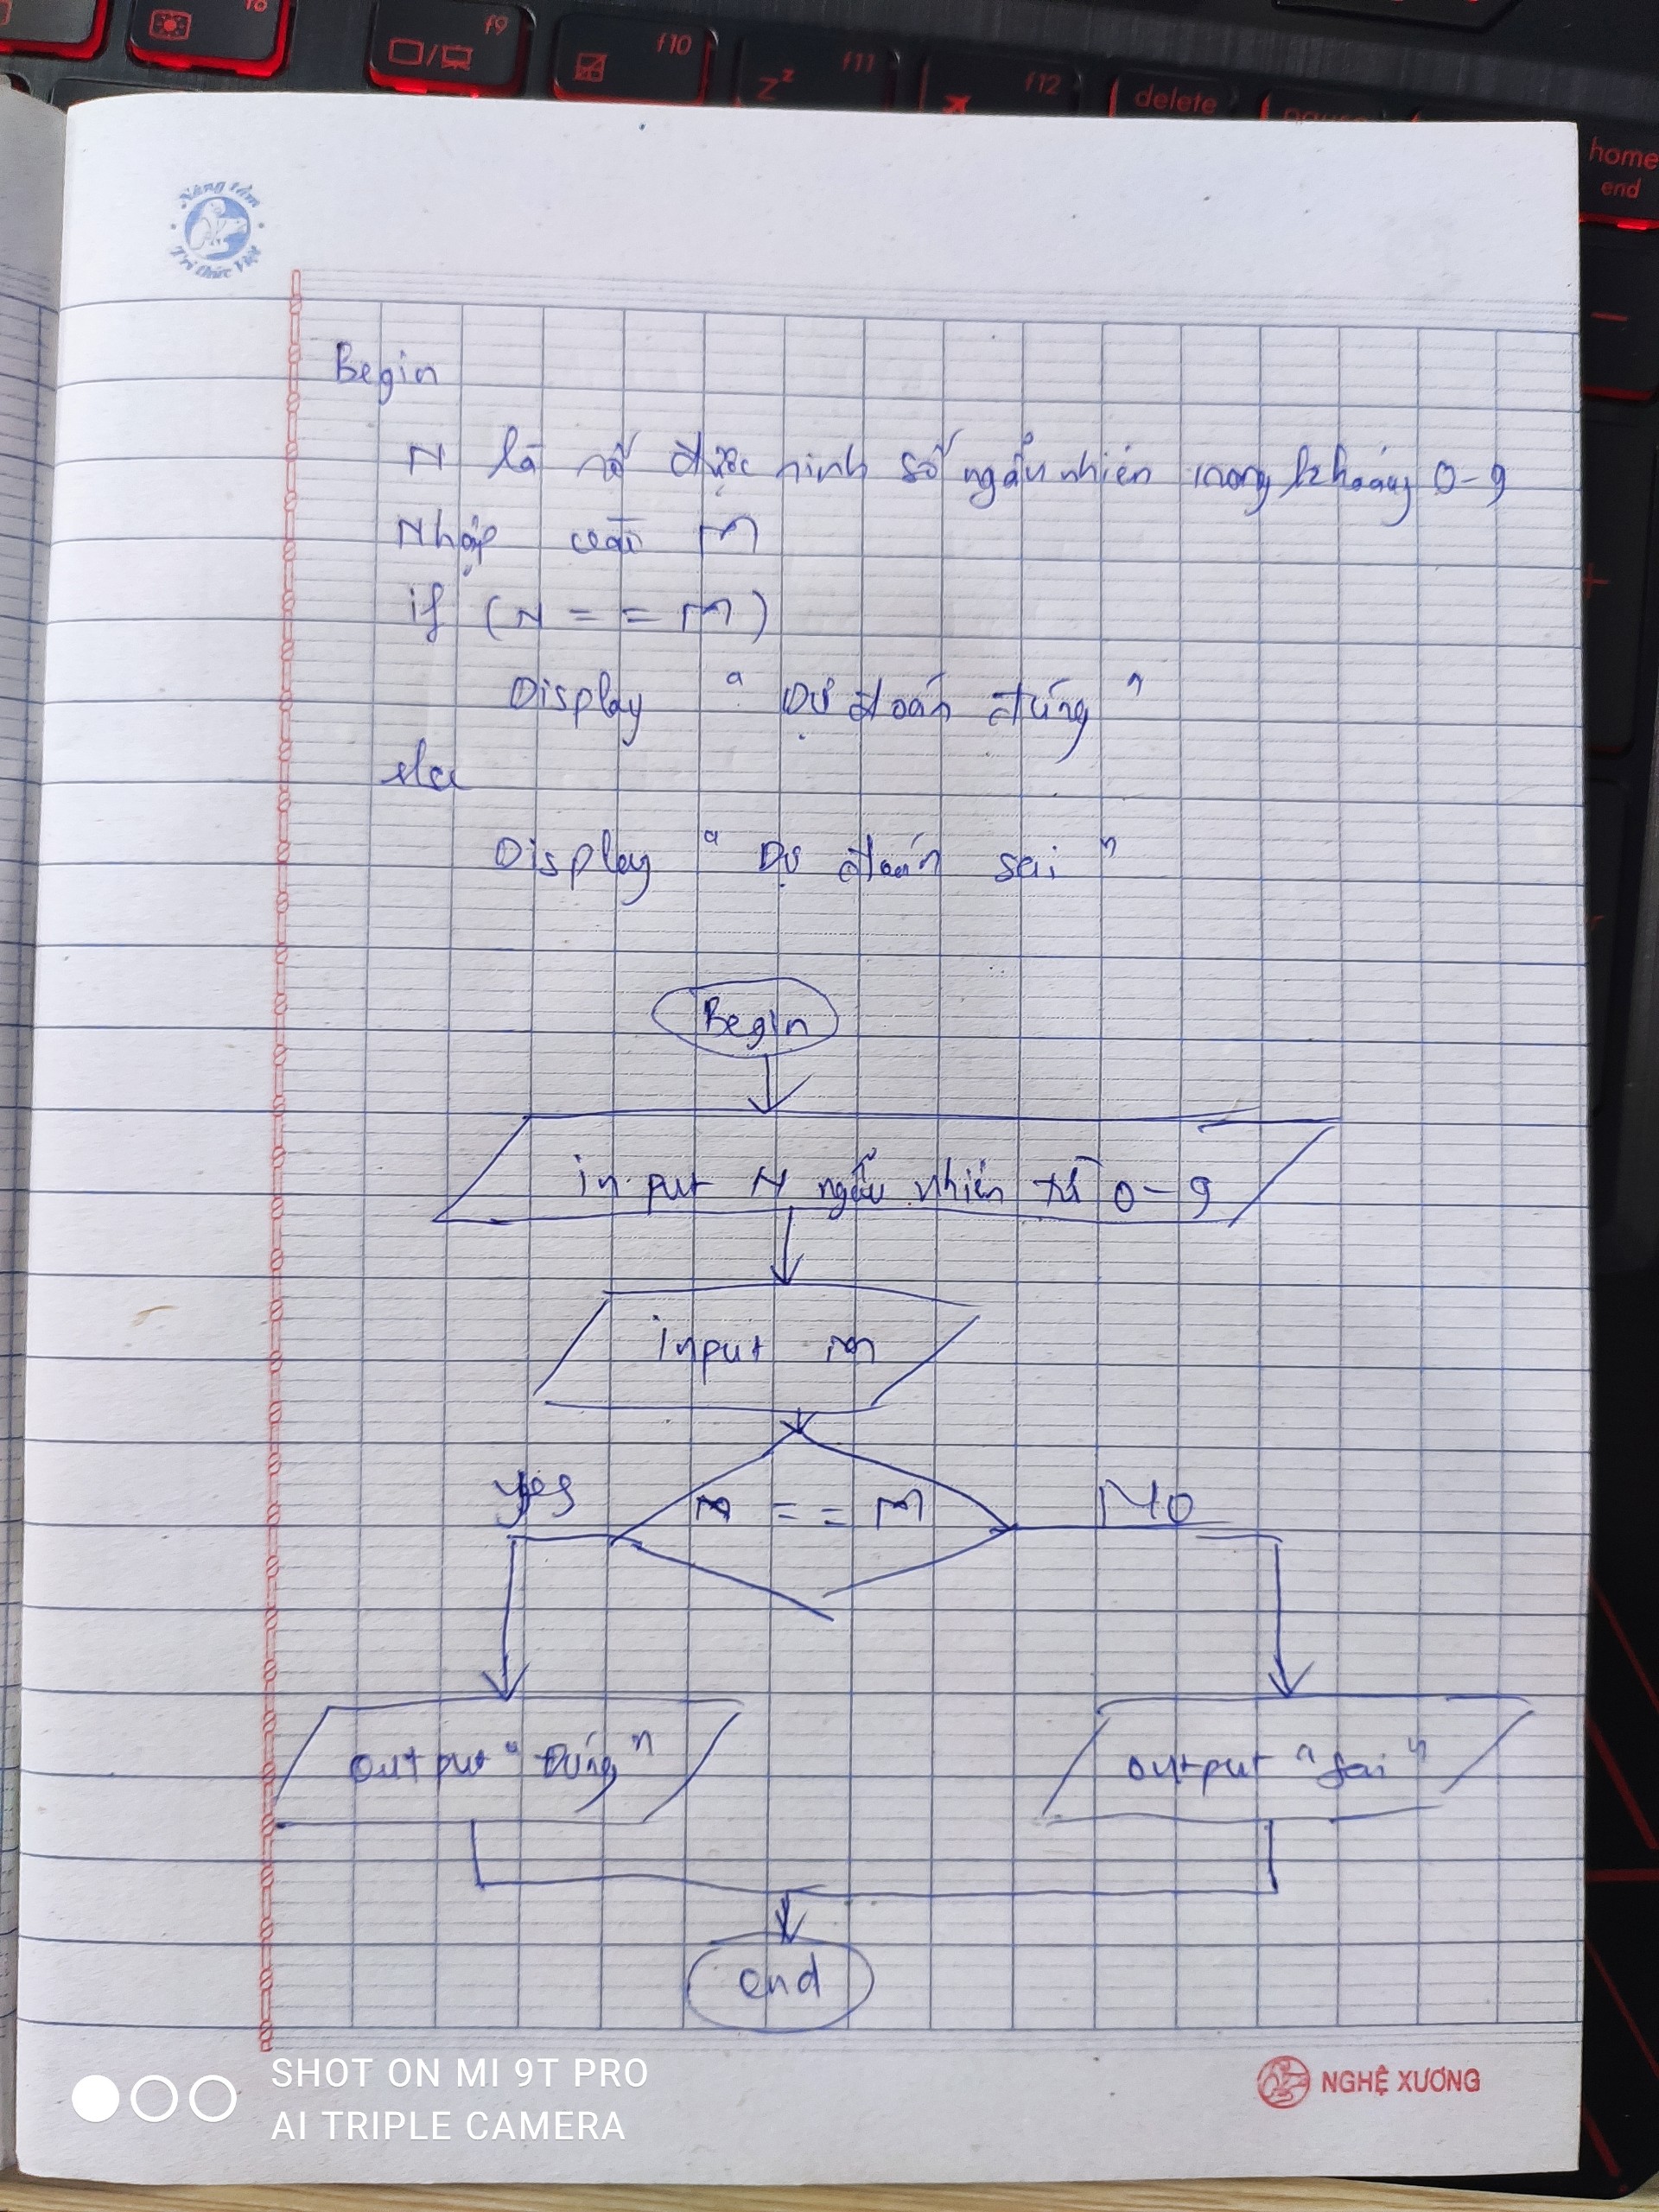 f9
f10
f11
f12
delete
home
end
Nâng tầm
Tri thức Việt
Begin
N là số được sinh số ngẫu nhiên trong khoảng 0-9
Nhập vào M
if (N == M)
Display " Dự đoán đúng "
else
Display " Dự đoán sai "
Begin
input N ngẫu nhiên từ 0-9
input M
Yes
N == M
No
output " Đúng "
output " Sai "
end
SHOT ON MI 9T PRO
AI TRIPLE CAMERA
NGHỆ XƯƠNG